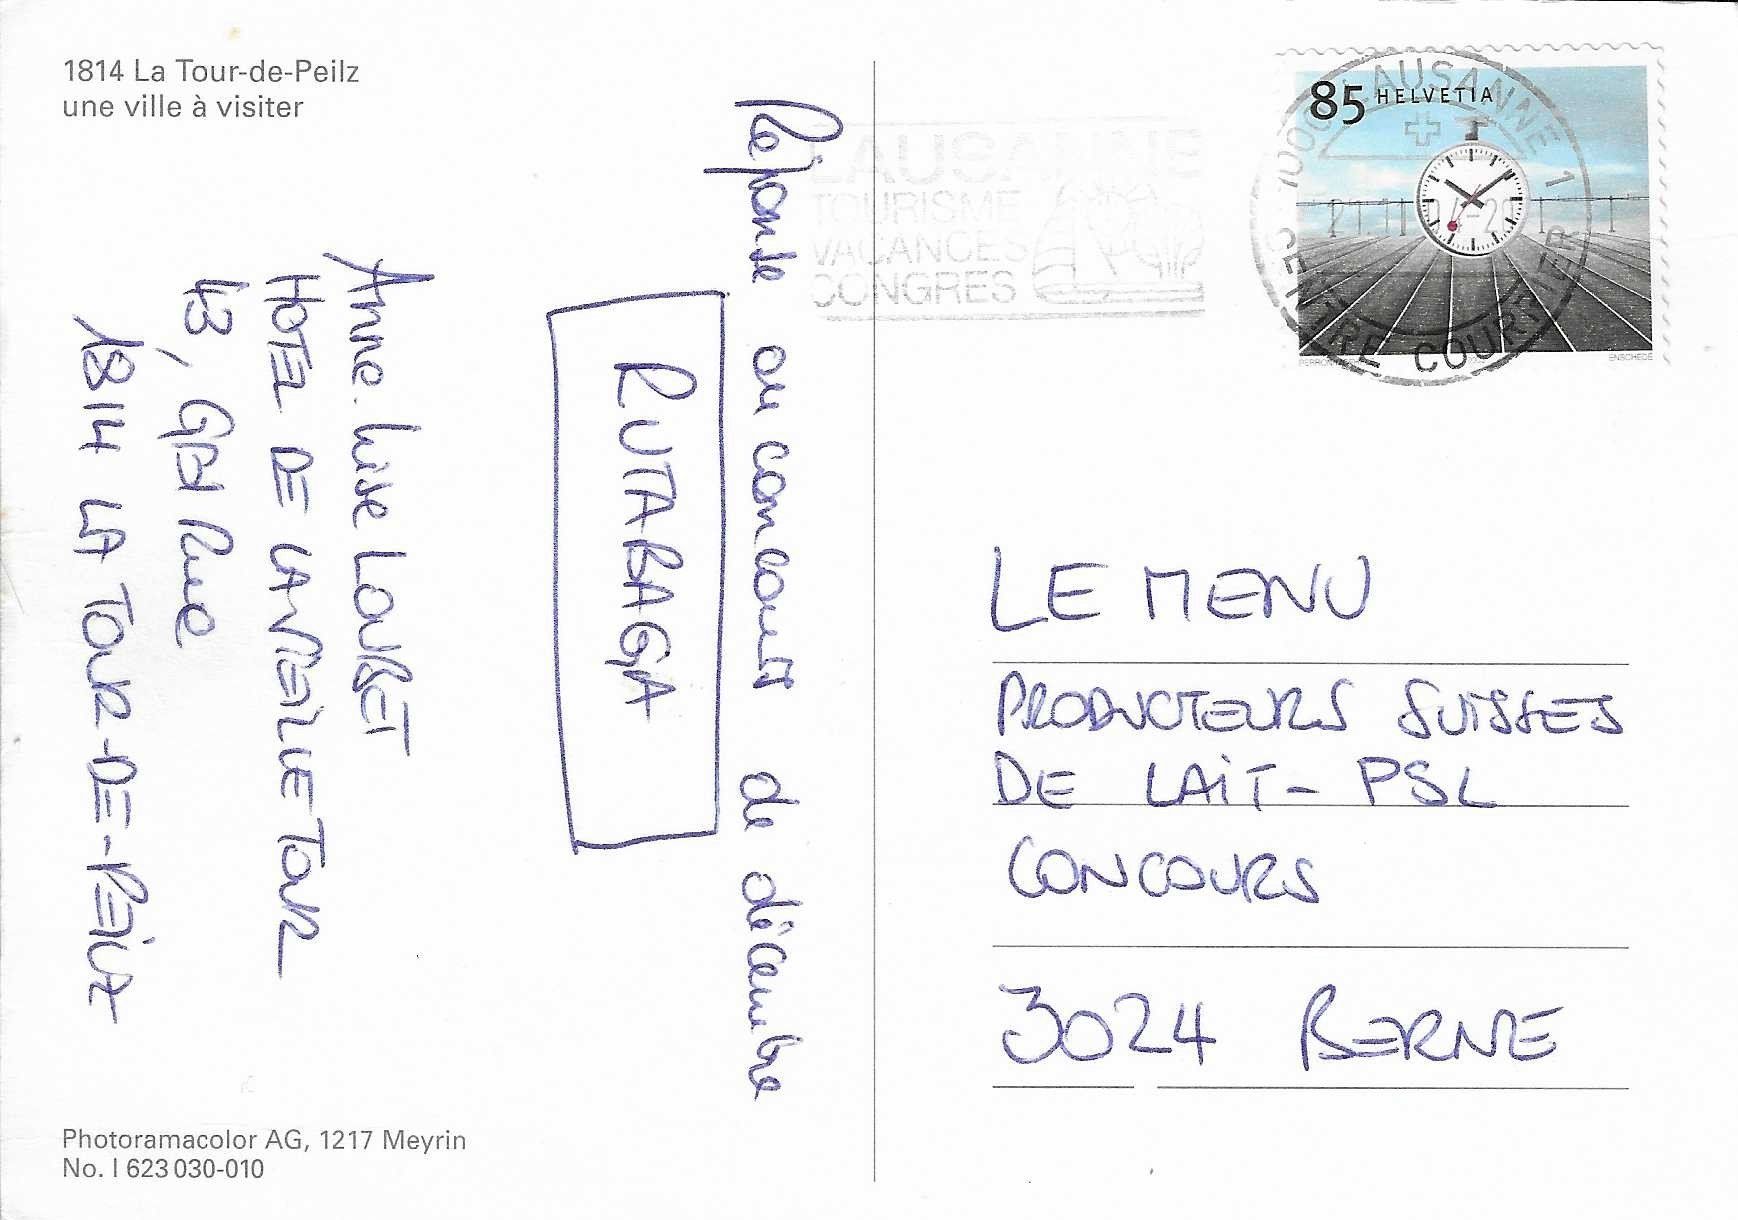 1814 La Tour-de-Peilz
une ville à visiter
Réponse au concours de décembre
RUTABAGA
Anne-Lise LOUBET
HOTEL DE LA VIEILLE TOUR
43, Gd Rue
1814 LA TOUR-DE-PEILZ
Photoramacolor AG, 1217 Meyrin
No. I 623 030-010
LAUSANNE
TOURISME
VACANCES
CONGRES
85 HELVETIA
1000 LAUSANNE 1
CENTRE COURRIER
ENSCHEDÉ
LE MENU
PRODUCTEURS SUISSES
DE LAIT - PSL
CONCOURS
3024 BERNE